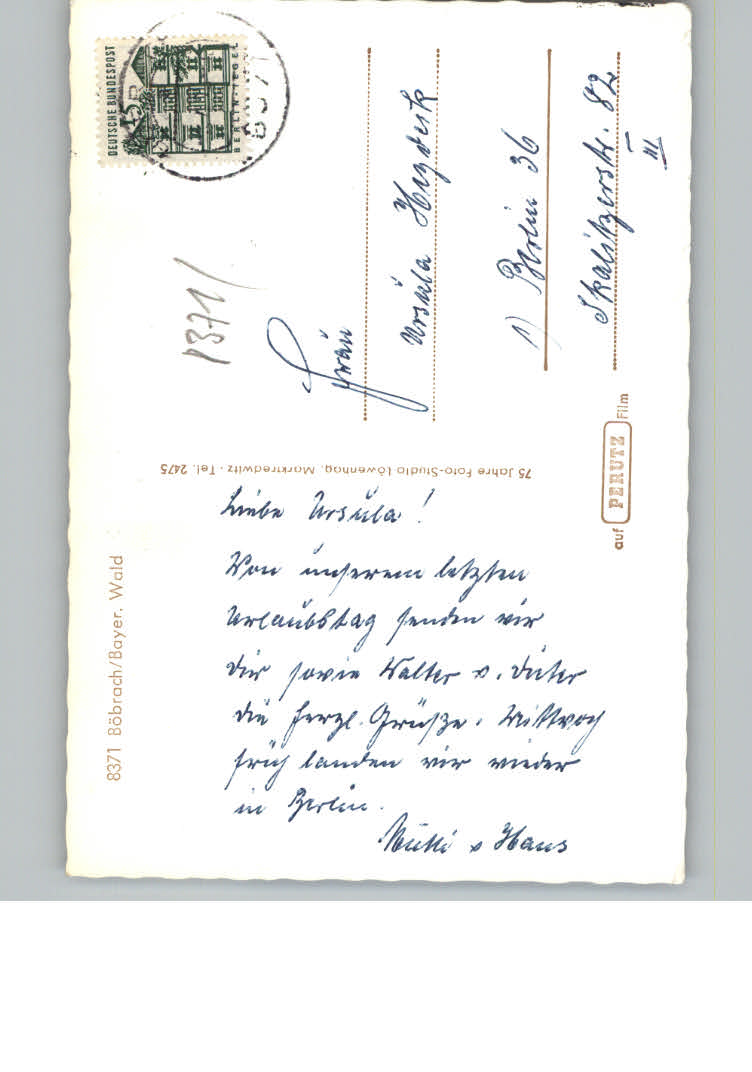 8371 Böbrach/Bayer. Wald
Liebe Ursula!
Von unserem letzten
Urlaubstag senden wir
Dir sowie Walter u. Dieter
die herzl. Grüße. Mittwoch
früh landen wir wieder
in Berlin.
Mutti u Hans
75 Jahre Foto-Studio Löwenhag, Marktredwitz · Tel. 2475
auf PERUTZ Film
DEUTSCHE BUNDESPOST
15
BERLIN-TEGEL
8371
8371
Frau
Ursula
1) Berlin 36
Skalitzerstr. 82
III